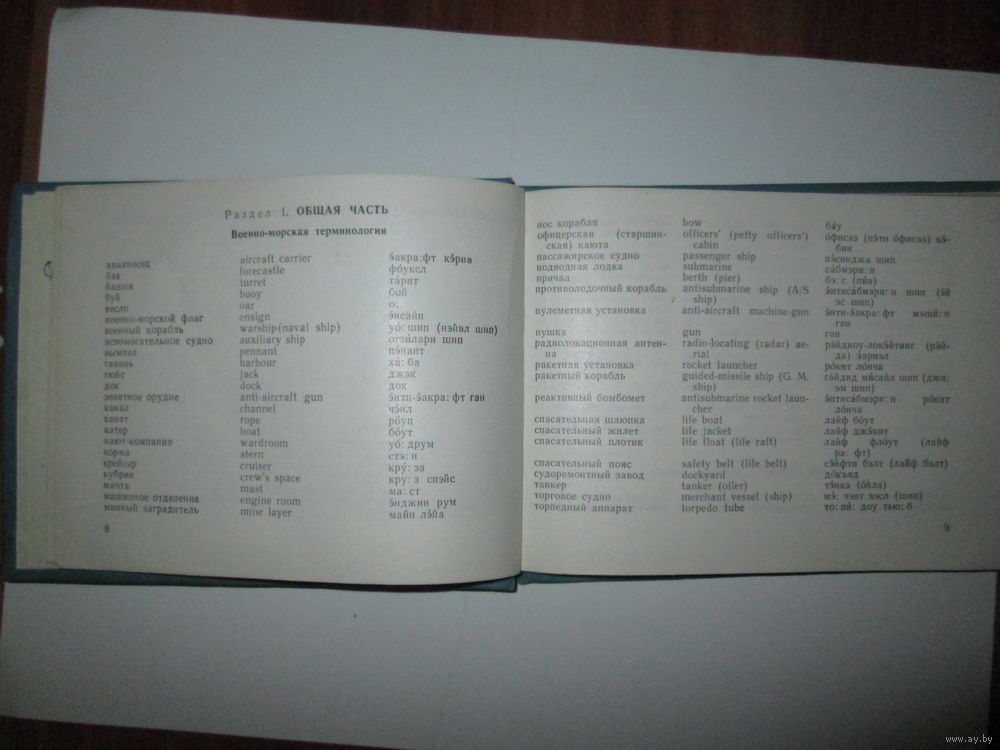 Раздел 1. ОБЩАЯ ЧАСТЬ
Военно-морская терминология
авианосец aircraft carrier э́акра:фт кэ́риа
бак forecastle фо́уксл
башня turret тарит
буй buoy бой
весло oar о:
военно-морской флаг ensign э́нсайн
военный корабль warship(naval ship) уо́: шип (нэ́йвл шип)
вспомогательное судно auxiliary ship шип
вымпел pennant пэ́нант
гавань harbour ха́: ба
гюйс jack джэк
док dock док
зенитное орудие anti-aircraft gun э́нти-э́акра: фт ган
канал channel чэ́нл
канат rope ро́уп
катер boat бо́ут
кают-компания wardroom уо́: друм
корма stern стэ: н
крейсер cruiser кру́: за
кубрик crew's space кру: з спэйс
мачта mast ма: ст
машинное отделение engine room э́нджин рум
минный заградитель mine layer майн лэ́йа
8
нос корабля bow ба́у
офицерская (старшин- officers' (petty officers') о́фисаз (пэ́ти о́фисаз) кэ́-
ская) каюта cabin бин
пассажирское судно passenger ship пэ́синджа шип
подводная лодка submarine са́бмэри: н
причал berth (pier) бэ: с (пи́а)
противолодочный корабль antisubmarine ship (A/S э́нтиса́бмэри: н шип (э́й
ship) эс шип)
пулеметная установка anti-aircraft machine-gun э́нти-э́акра: фт мэши́: н
ган
пушка gun ган
радиолокационная антен- radio-locating (radar) ae- рэ́йдиоу-локэ́йтинг (рэ́й-
на rial да) э́ариэл
ракетная установка rocket launcher ро́кит ло́нча
ракетный корабль guided-missile ship (G. M. га́йдид ми́сайл шип (джи:
ship) эм шип)
реактивный бомбомет antisubmarine rocket laun- э́нтиса́бмэри: н ро́кит
cher ло́нча
спасательная шлюпка life boat лайф бо́ут
спасательный жилет life jacket лайф джэ́кит
спасательный плотик life float (life raft) лайф фло́ут (лайф
ра: фт)
спасательный пояс safety belt (life belt) сэ́йфти бэлт (лайф бэлт)
судоремонтный завод dockyard до́къяд
танкер tanker (oiler) тэ́нка (о́йла)
торговое судно merchant vessel (ship) мэ́: чэнт вэсл (шип)
торпедный аппарат torpedo tube то: пи́: доу тью: б
9
www.ay.by